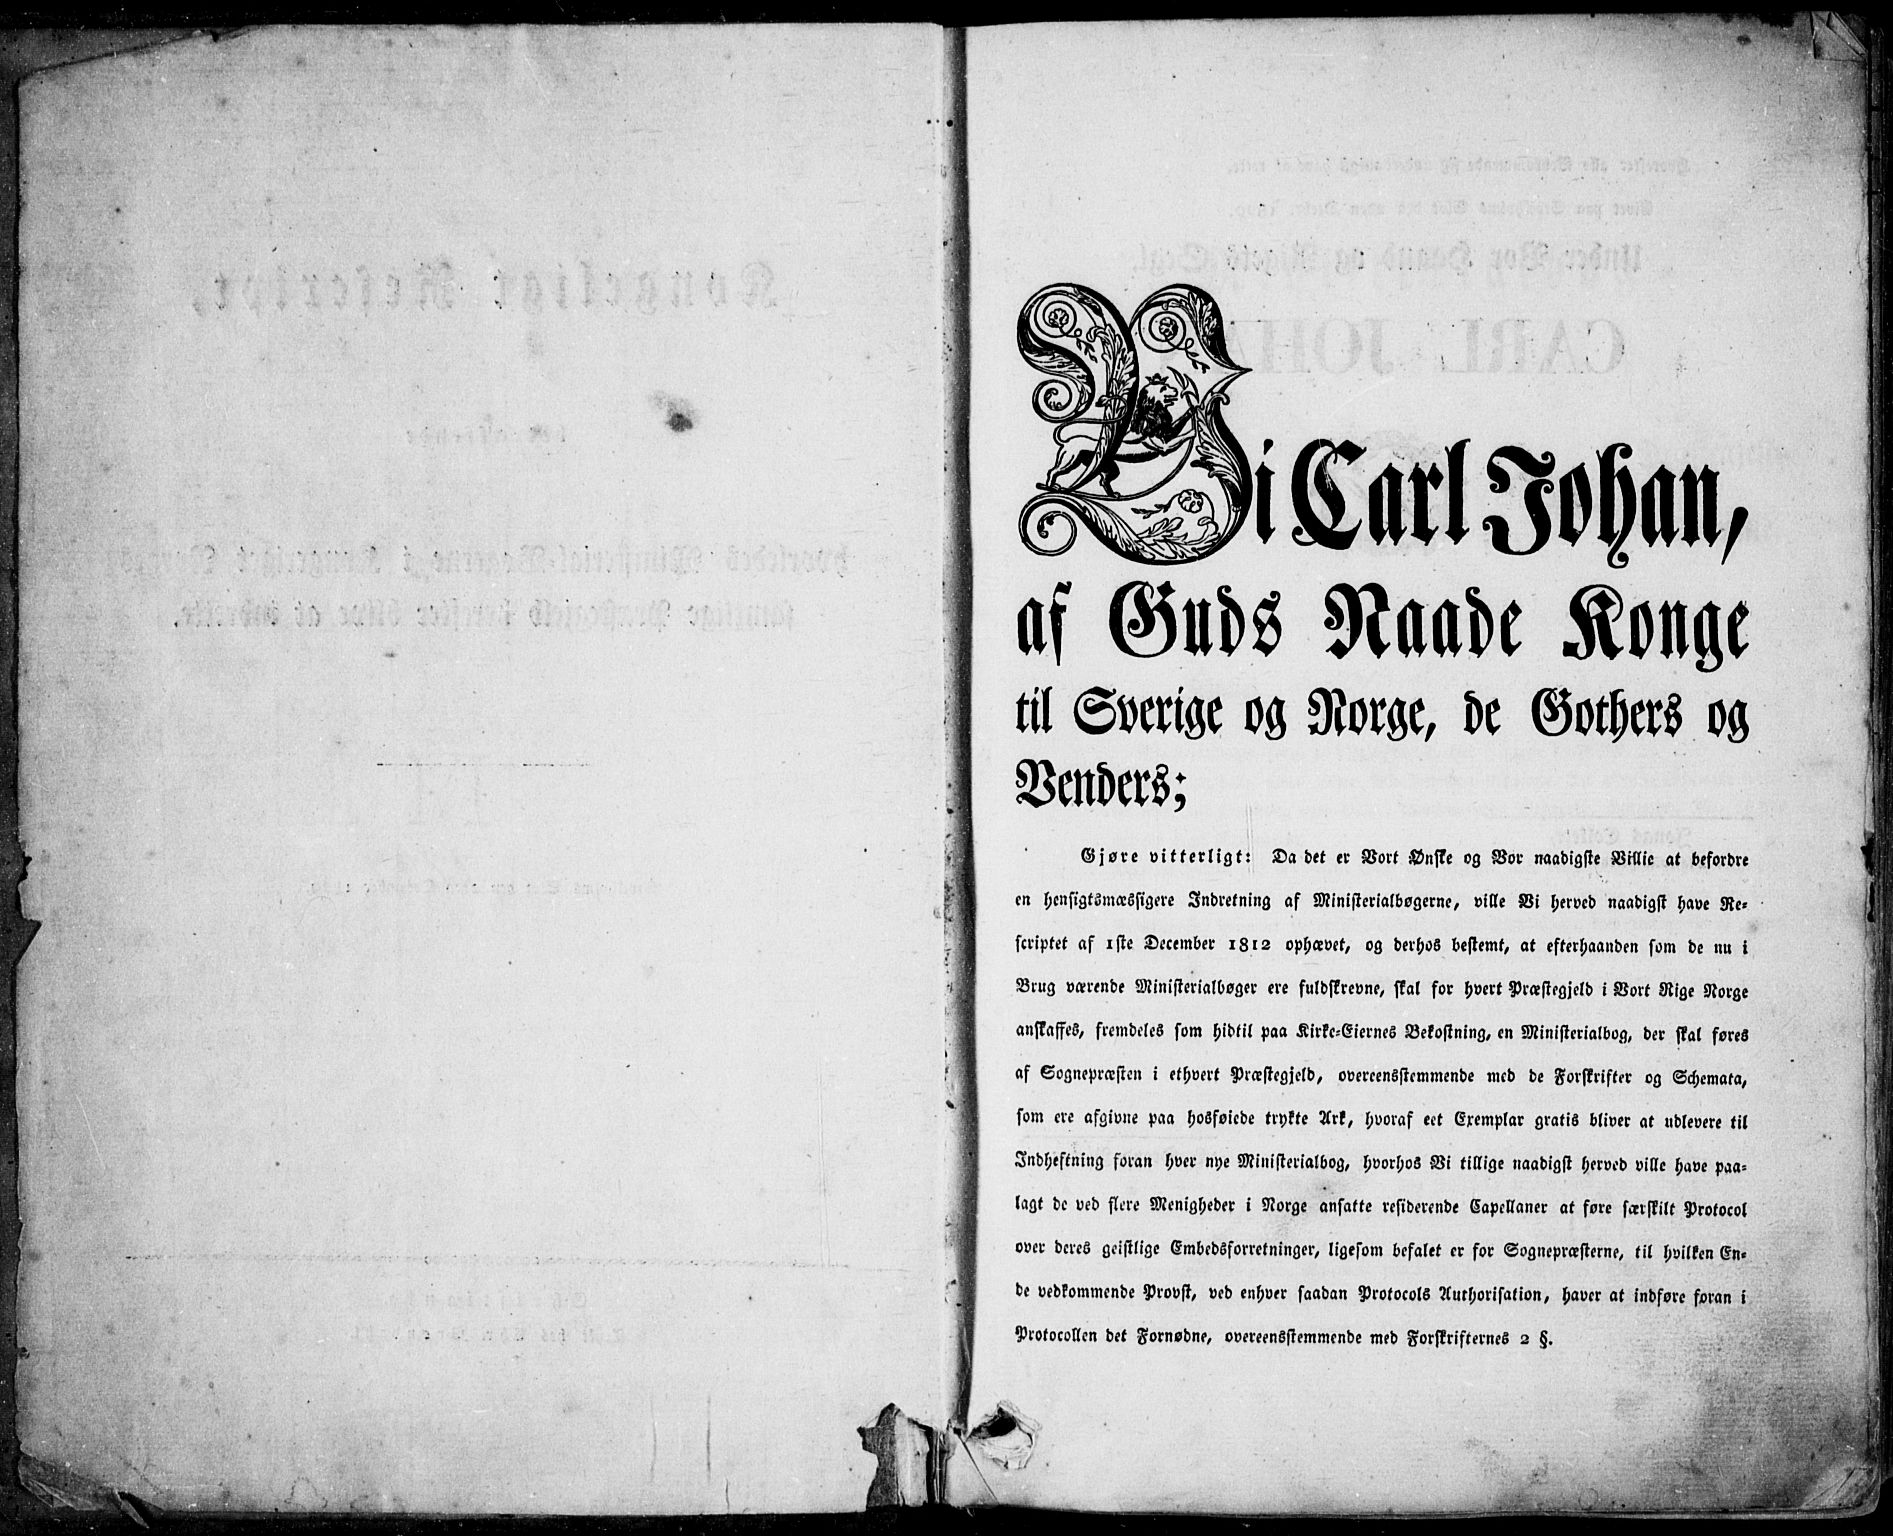 Vi Carl Johan,
af Guds Naade Konge
til Sverige og Norge, de Gothers og
Venders;
Gjøre vitterligt: Da det er Vort Ønske og Vor naadigste Villie at befordre
en hensigtsmæssigere Indretning af Ministerialbøgerne, ville Vi herved naadigst have Re-
scriptet af 1ste December 1812 ophævet, og derhos bestemt, at efterhaanden som de nu i
Brug værende Ministerialbøger ere fuldskrevne, skal for hvert Præstegjeld i Vort Rige Norge
anskaffes, fremdeles som hidtil paa Kirke-Eiernes Bekostning, en Ministerialbog, der skal føres
af Sognepræsten i ethvert Præstegjeld, overeensstemmende med de Forskrifter og Schemata,
som ere afgivne paa hosføiede trykte Ark, hvoraf eet Exemplar gratis bliver at udlevere til
Indheftning foran hver nye Ministerialbog, hvorhos Vi tillige naadigst herved ville have paa-
lagt de ved flere Menigheder i Norge ansatte residerende Capellaner at føre særskilt Protocol
over deres geistlige Embedsforretninger, ligesom befalet er for Sognepræsterne, til hvilken En-
de vedkommende Provst, ved enhver saadan Protocols Authorisation, haver at indføre foran i
Protocollen det Fornødne, overeensstemmende med Forskrifternes 2 §.